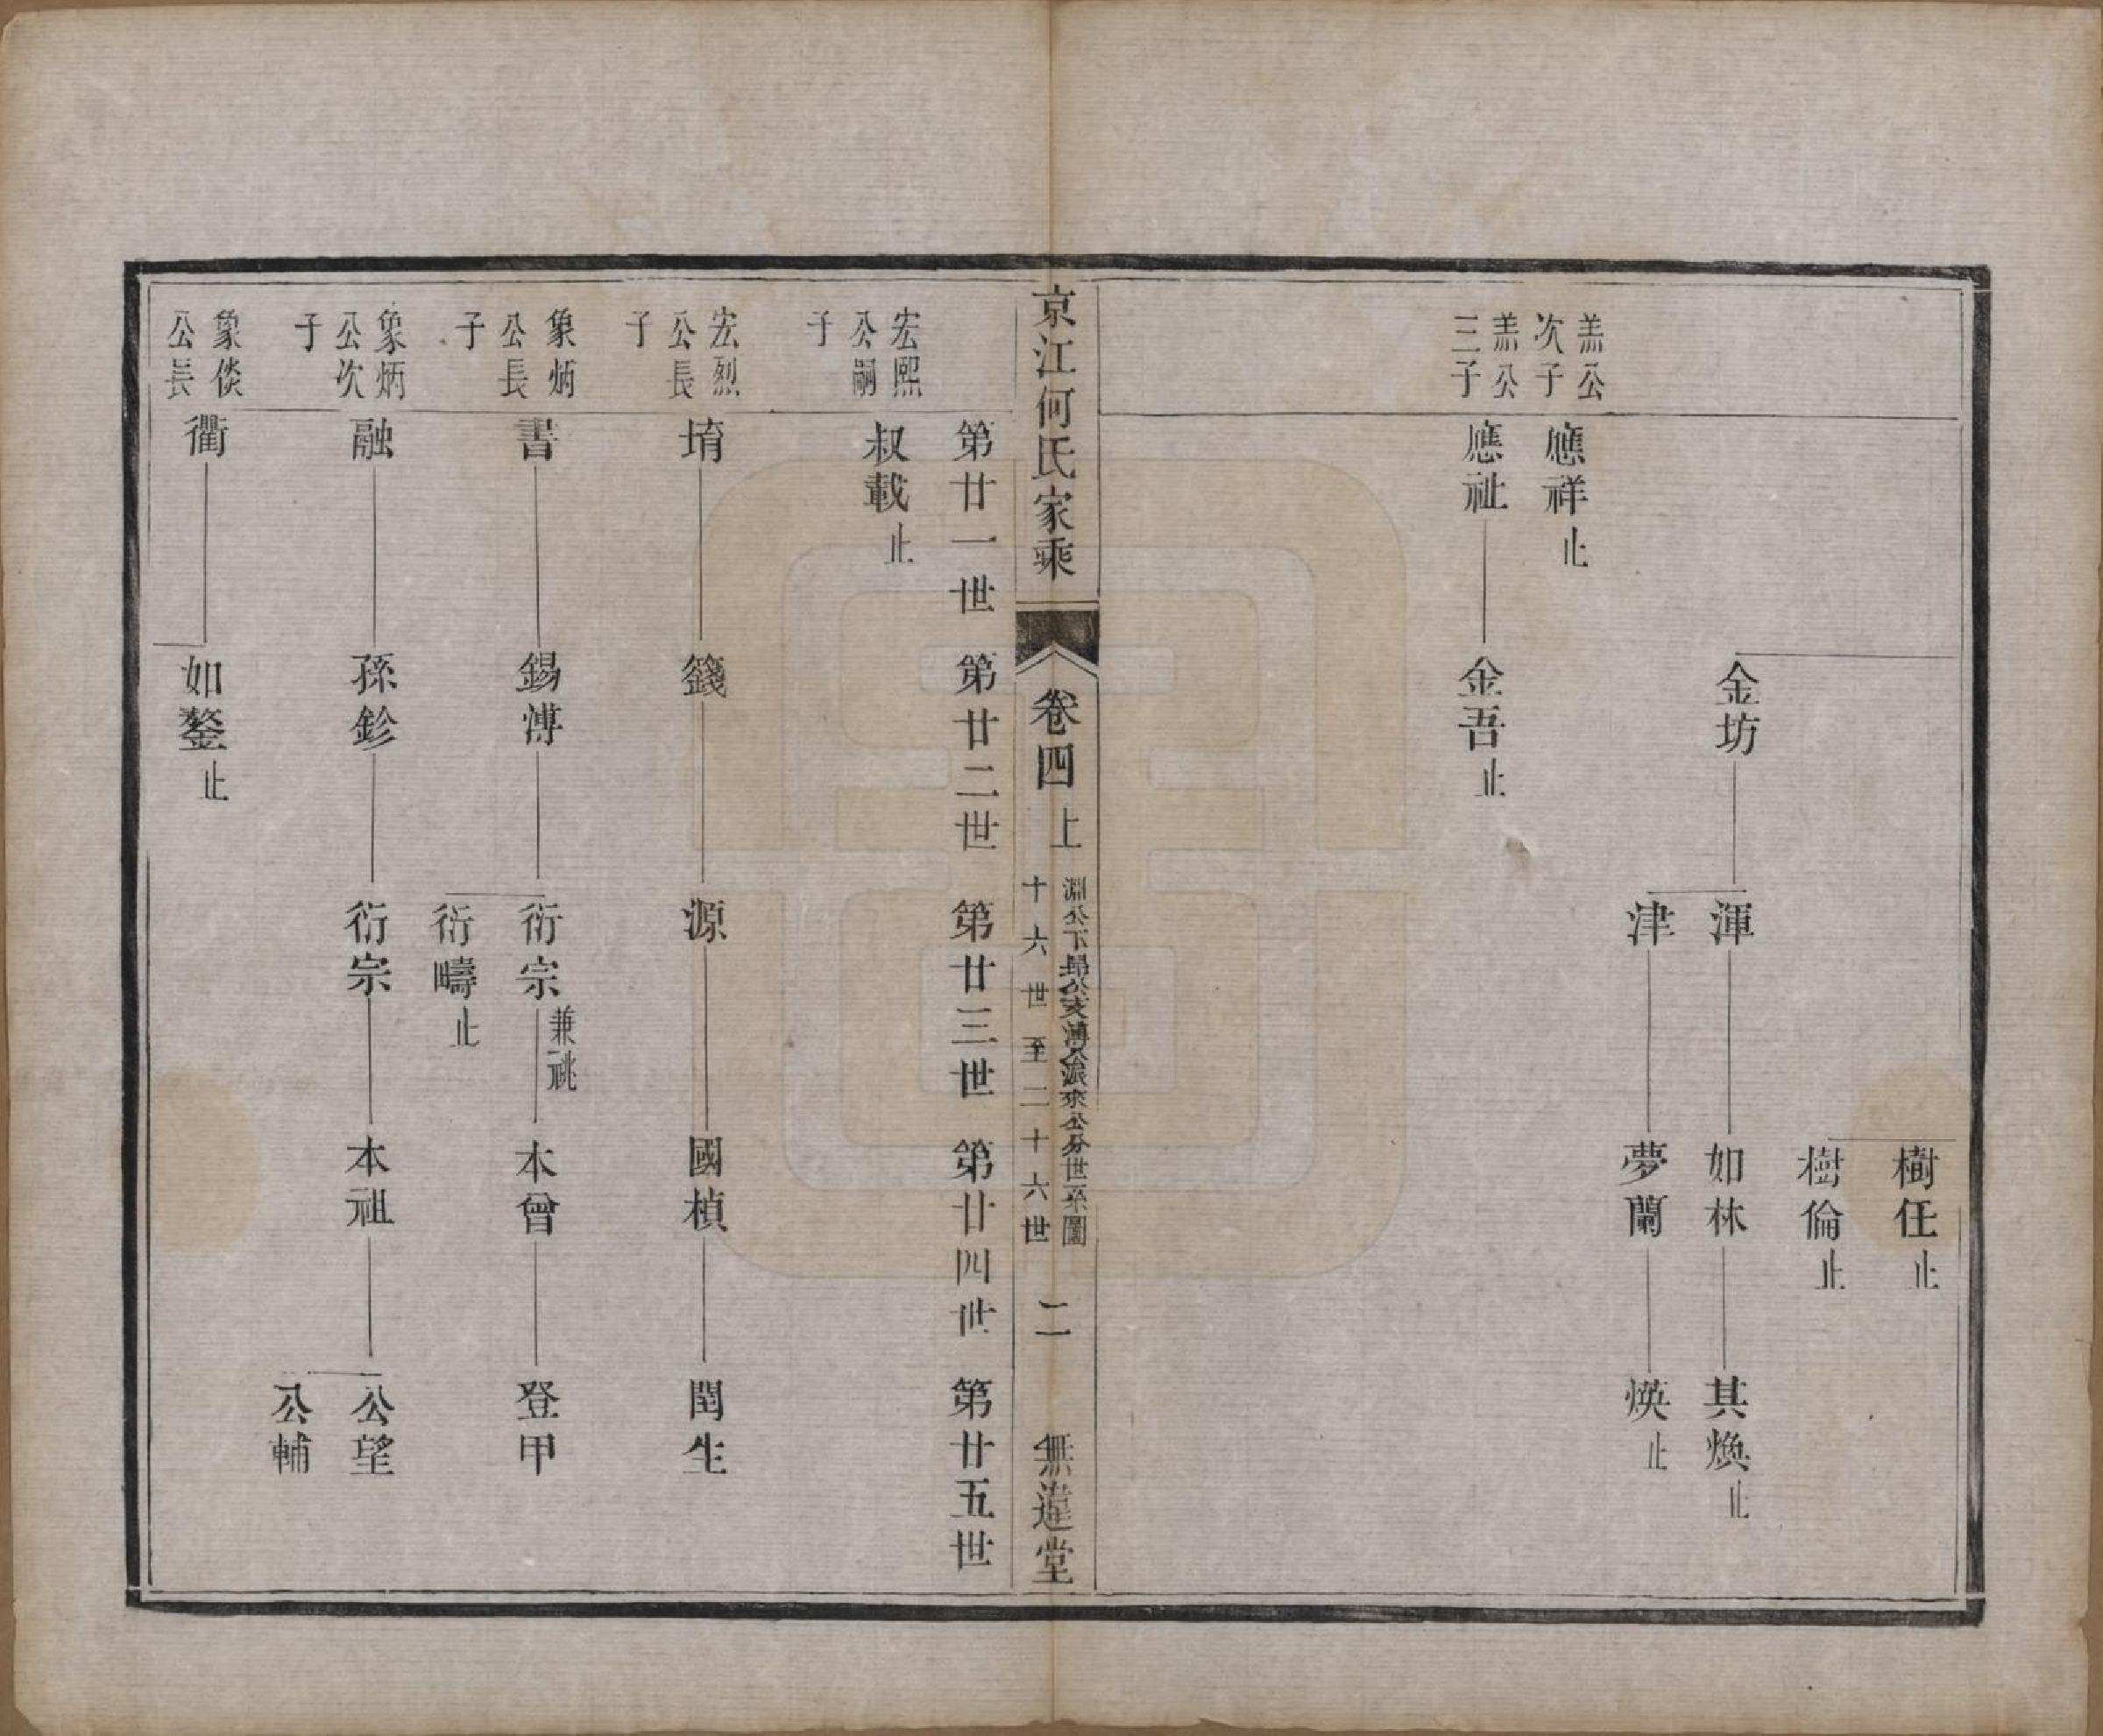 樹任止
樹倫止
金坊
渾
如林
其煥止
津
夢蘭
煐止
羔公
次子
應祥止
羔公
三子
應祉
金吾止
京江何氏家乘
卷四上
淵公下昂公支溥公派來公分世系圖
十六世至二十六世
二
無違堂
第廿一世
第廿二世
第廿三世
第廿四世
第廿五世
宏熙
公嗣
子
叔載止
宏烈
公長
子
堉
籛
源
國楨
閏生
象炳
公長
子
書
錫溥
衍宗兼祧
本曾
登甲
衍疇止
象炳
公次
子
融
孫鉁
衍宗
本祖
公望
公輔
象倓
公長
衢
如鏊止